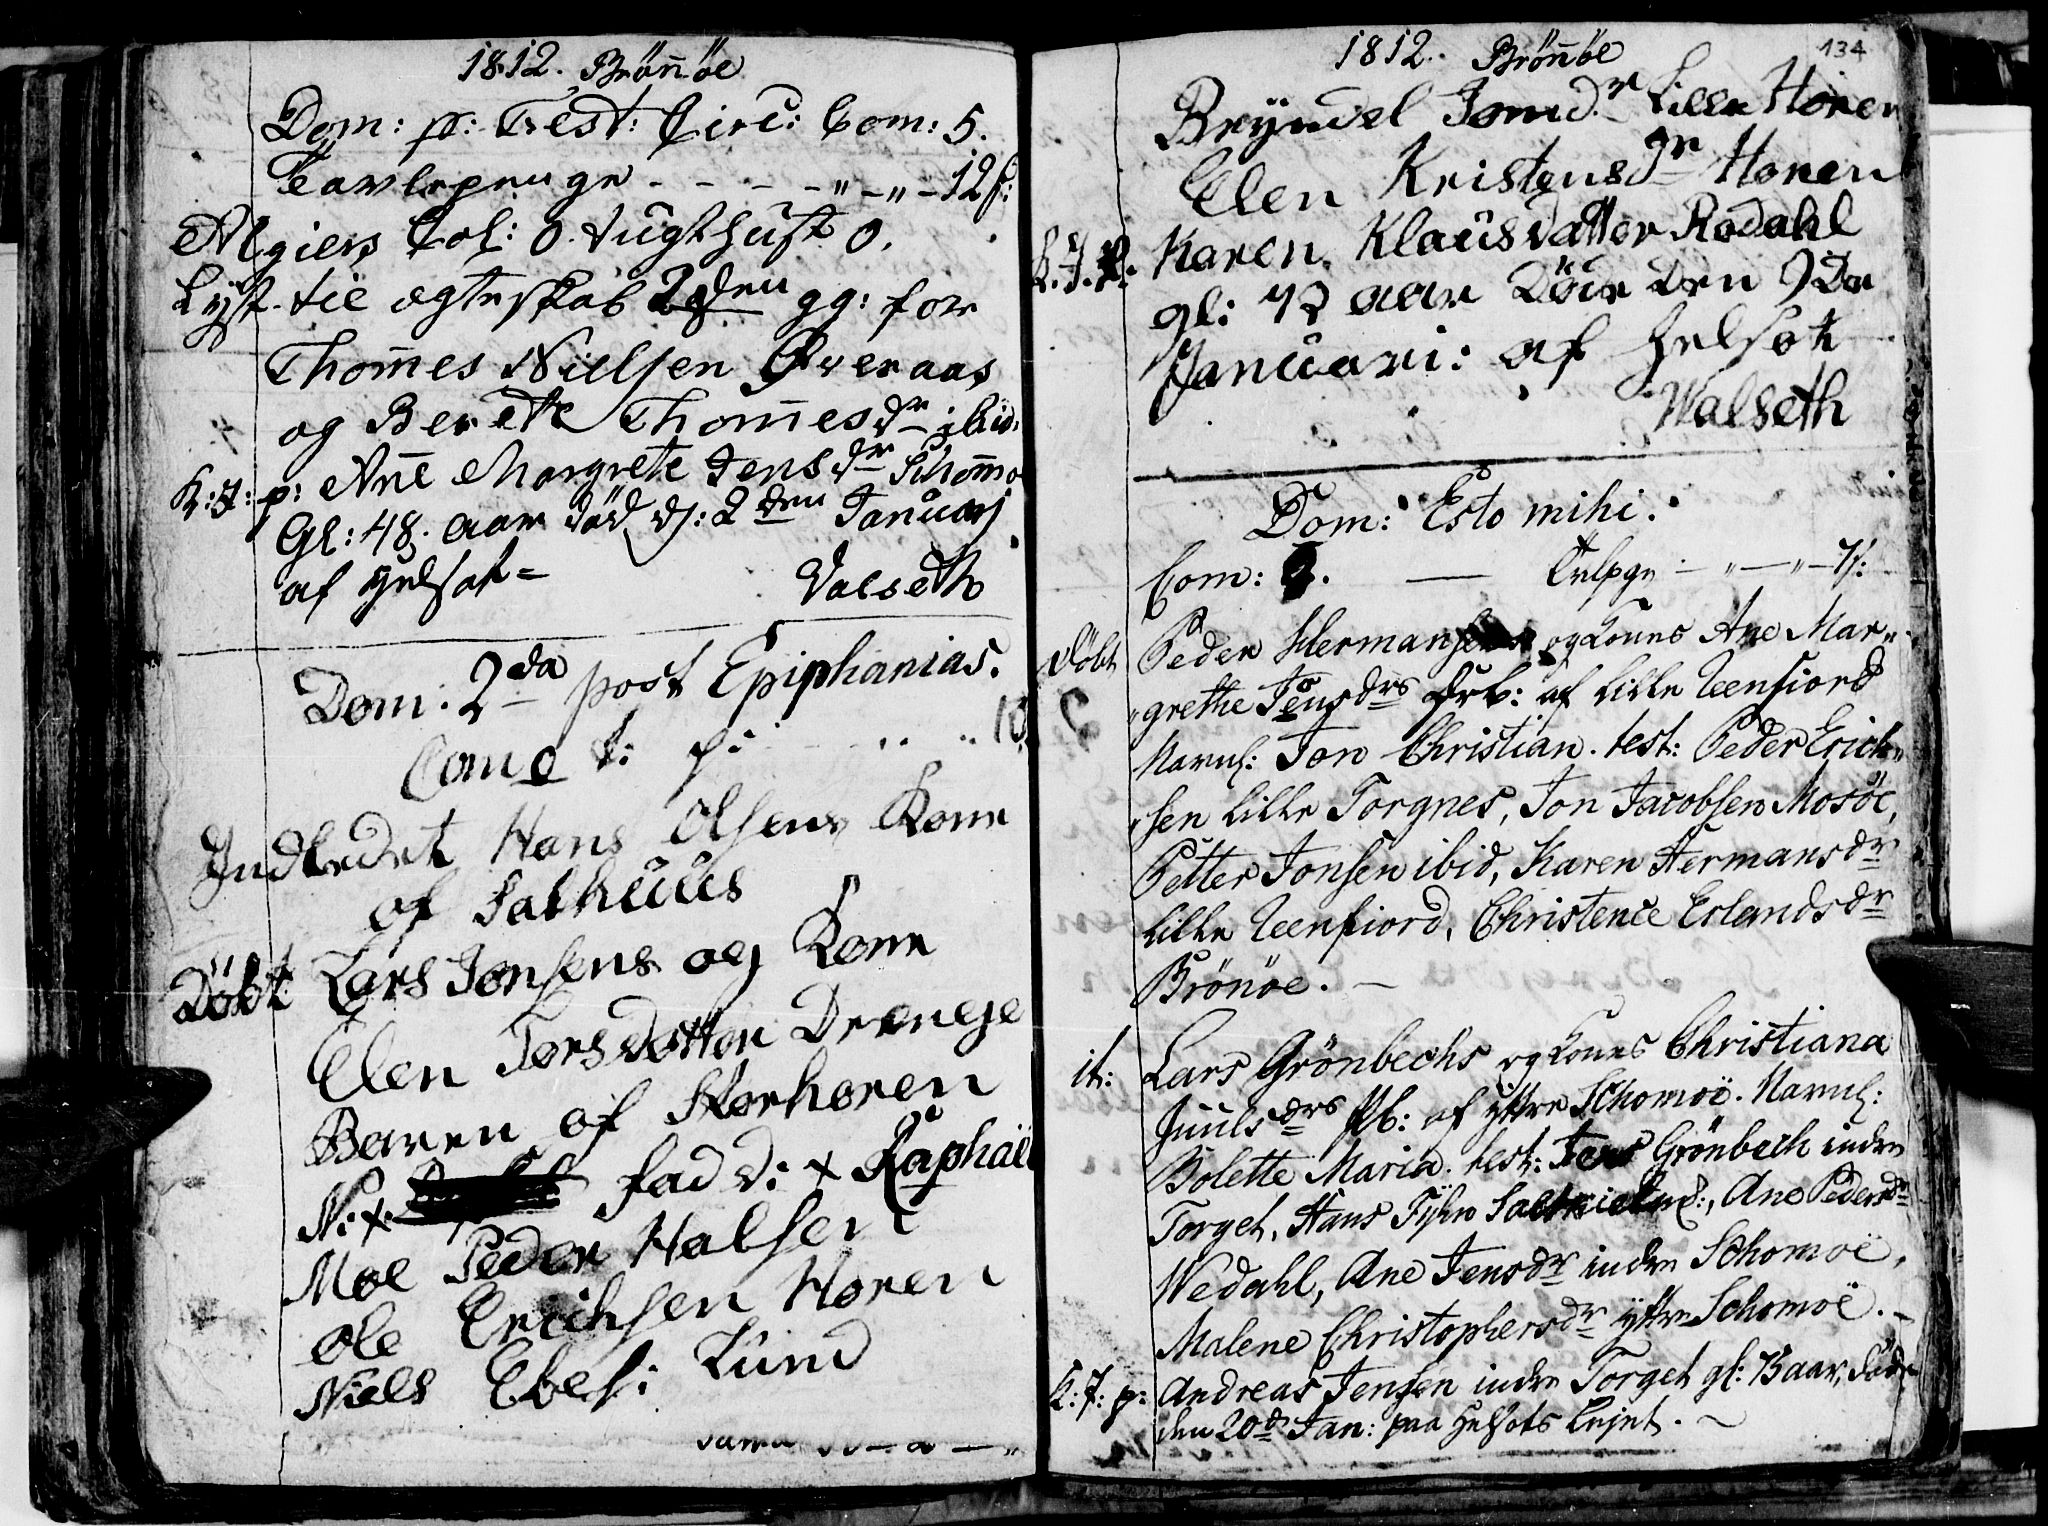 1812. Brönnöe
Dom: p: Fest: Circ: Com: 5.
Tavlepenge - - - - " - " - 12 s:
Algiers Col: 0. Tugthust 0.
Lyst til ægteskab 2den gg: for
Thomes Nielsen Øveraas
og Berette Thomesdr ibid:
K: J: p: Ane Margrete Jensdr Schomo
Gl: 48. aar död d: 2den Januarj
af helsot =
Valseth
Dom: 2da post Epiphanias.
Com 0 t: p:
Indledet Hans Olsens Kone
af Salhuus
Döbt Lars Jonsens og Kone
Elen Torsdatter Drænge
Baren af Storhoren
N: x fadd: x Raphaël
Moe Peder Halsen
Ole Erichsen Horen
Niels Ebes: Lund
1812. Brönnöe
134
Bryndel Jomdr Lille Horen
Elen Kristensdr Horen
K. J. P. Karen Klausdatter Rodahl
gl: 73 aar Döde den 9de
Januari: af helsot
Walseth
Dom: Esto mihi.
Com: — Tvlpge - " - " - 7 s:
Döbt Peder Hermansens og Kones Ane Mar-
grethe Jensdrs Drb: af Lille Teenfiord
Navnl: Jon Christian. test: Peder Erich-
sen Lille Torgnes, Jon Jacobsen Mosöe,
Petter Jonsen ibid, Karen Hermansdr
Lille Teenfiord, Christence Erlandsdr
Brönöe. —
it: Lars Grönbechs og Kones Christiana
Juulsdrs Pb: af ÿttre Schomoë. Navnl:
Bolette Maria. test: Jens Grönbech indre
Torget, Hans Tÿhn , Ane Pedersdr
Wedahl, Ane Jensdr indre Schomoë,
Malene Christophersdr ÿttre Schomoë. —
K: J: p: Andreas Jensen indre Torget gl: 13 aar, död
den 20de Jan: paa Helsots Lejet. —